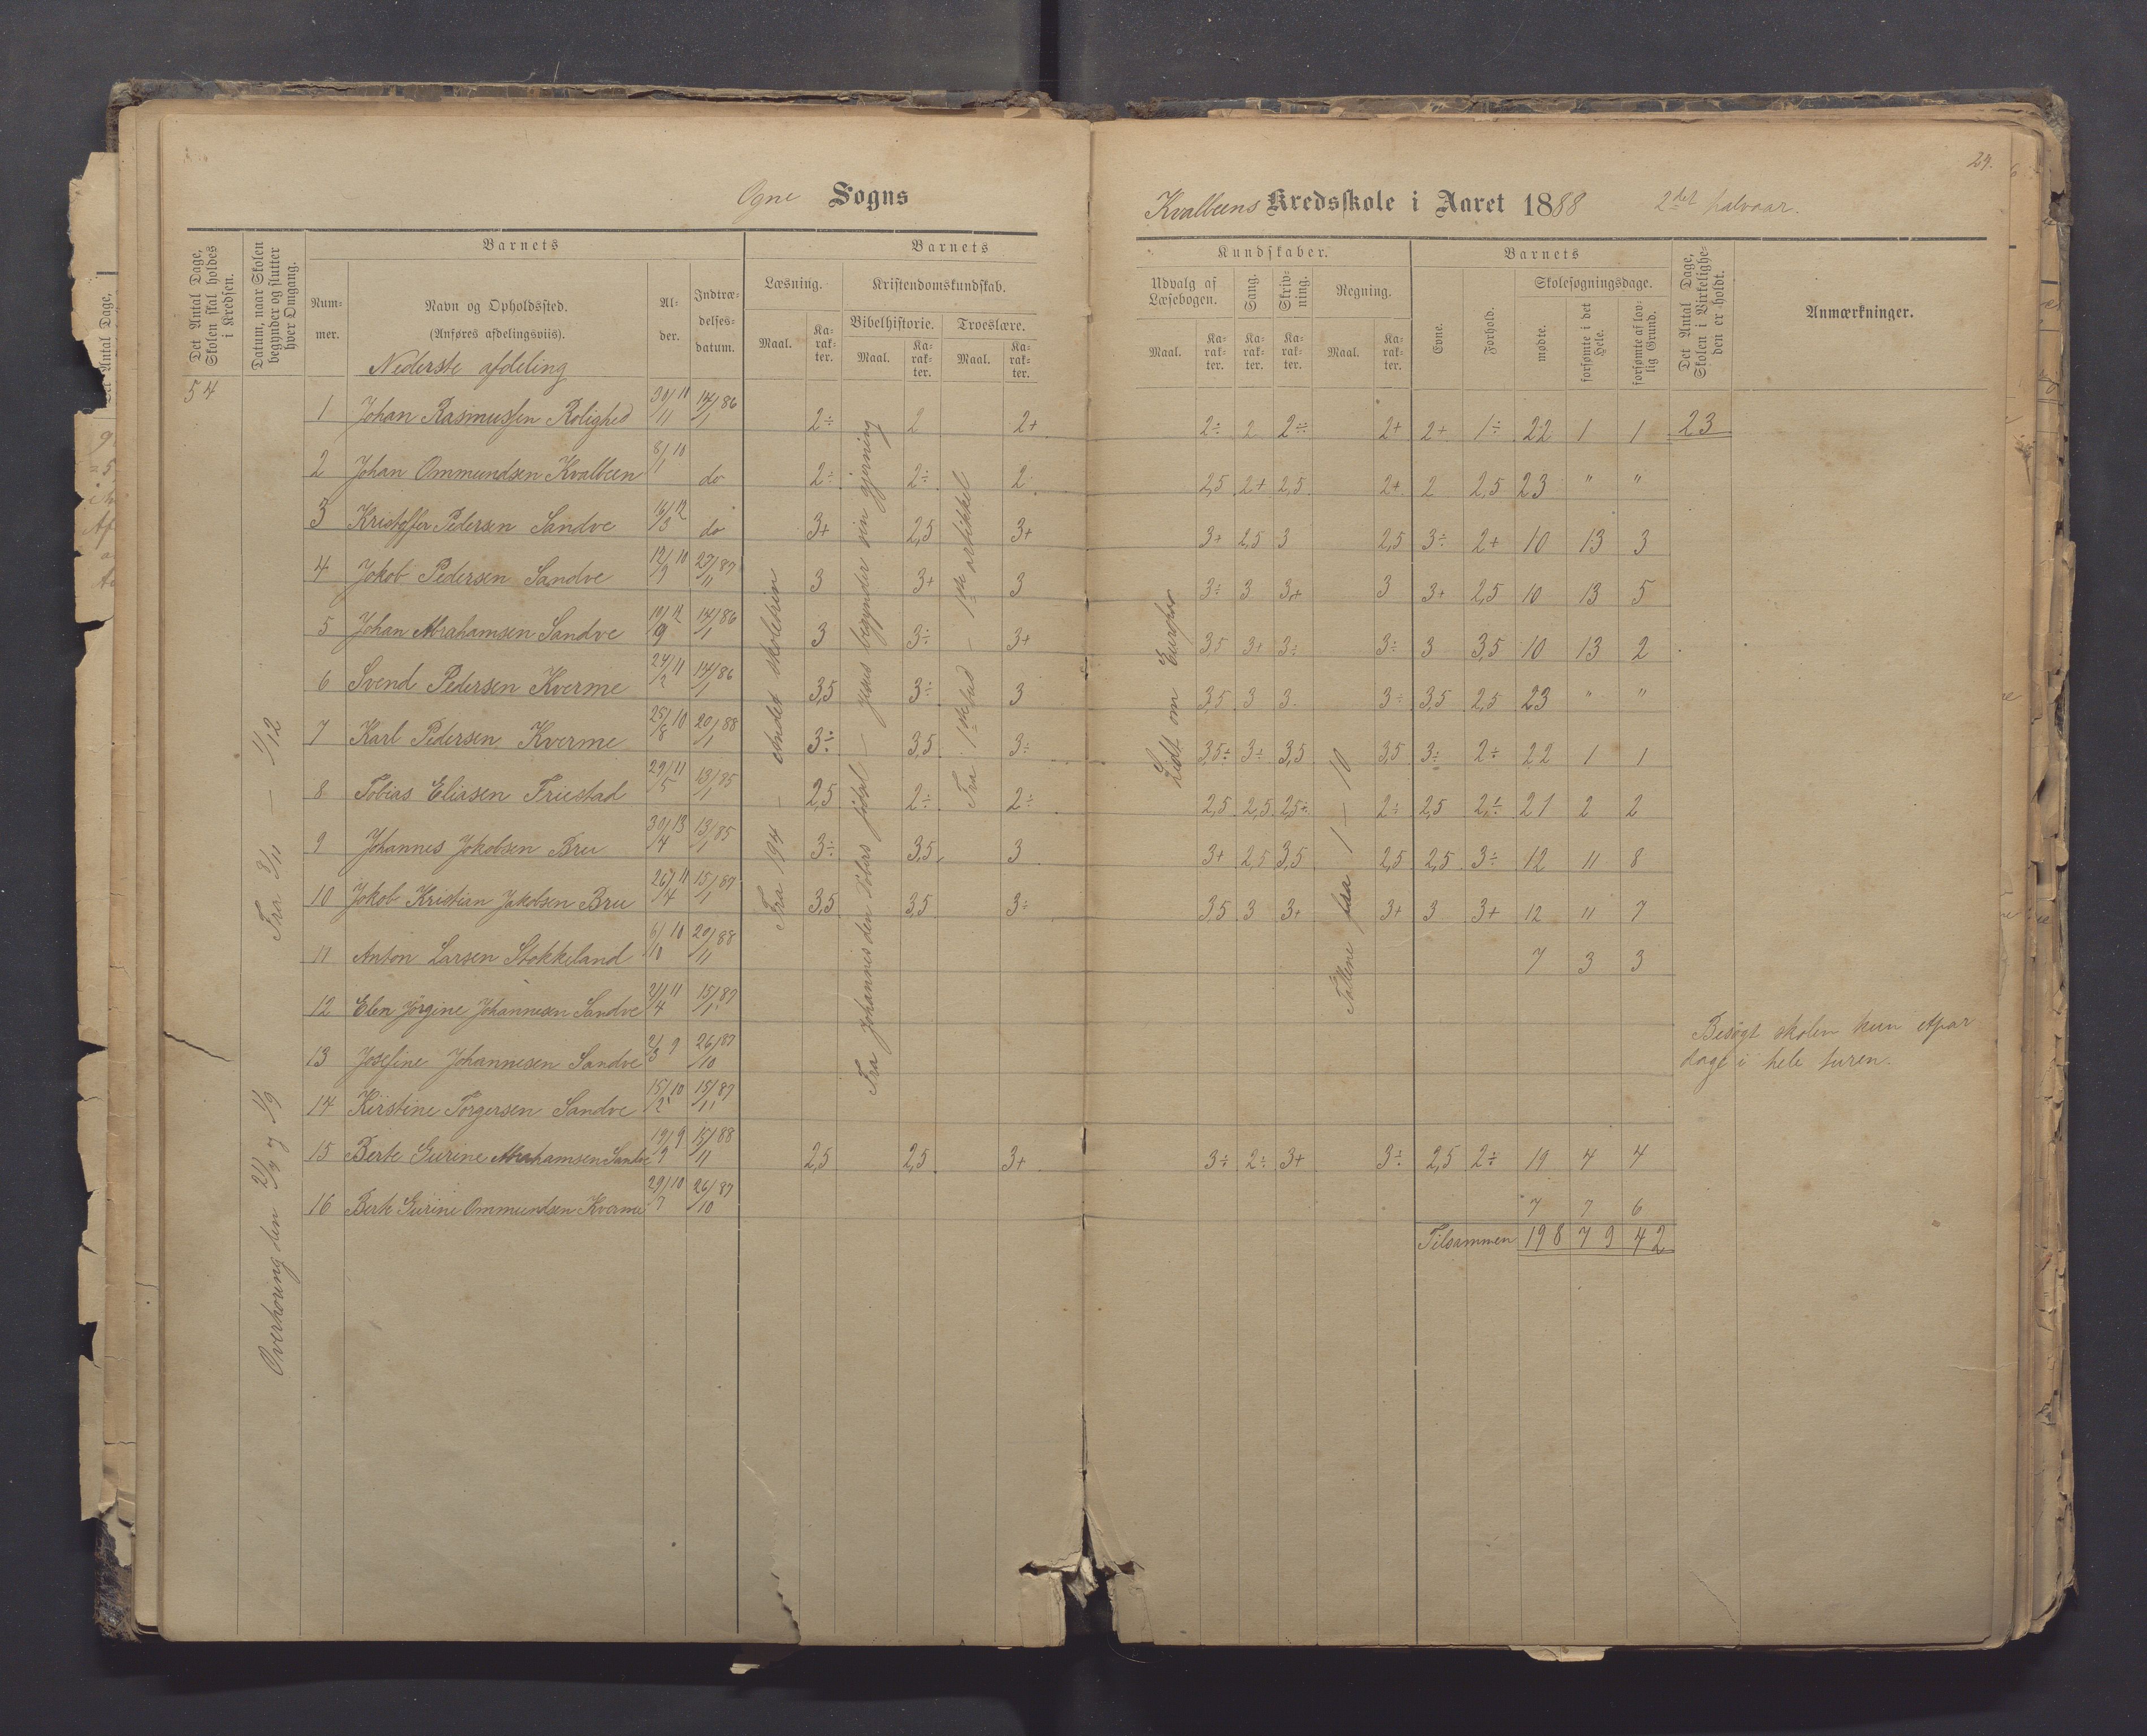 29.
Ogne Sogns
Kvalbeens Kredsskole i Aaret 1888 2det halvaar.
Det Antal Dage, Skolen skal holdes i Kredsen.
Datum, naar Skolen begynder og slutter hver Omgang.
Barnets
Nummer.
Navn og Opholdssted. (Anføres afdelingsviis).
Alder.
Indtrædelsesdatum.
Barnets
Læsning.
Kristendomskundskab.
Bibelhistorie. Troeslære.
Maal. Karakter. Maal. Karakter. Maal. Karakter.
Kundskaber.
Udvalg af Læsebogen. Sang. Skrivning. Regning.
Maal. Karakter. Karakter. Karakter. Maal. Karakter.
Barnets
Evne. Forhold. Skolesøgningsdage.
mødte. forsømte i det Hele. forsømte af lovlig Grund.
Det Antal Dage, Skolen i Virkeligheden er holdt.
Anmærkninger.
Nederste afdeling
54
1 Johan Rasmussen Rolighed 30/11 11 14/1 86 2÷ 2 2+ 2÷ 2 2÷ 2+ 2+ 1÷ 22 1 1 23
2 Johan Ommundsen Kvalbeen 8/1 10 do 2÷ 2÷ 2 2,5 2+ 2,5 2+ 2 2,5 23 " "
3 Kristoffer Pedersen Sandve 16/3 12 do 3+ 2,5 3+ 3+ 2,5 3 2,5 3÷ 2+ 10 13 3
4 Jokob Pedersen Sandve 12/9 10 27/11 87 3 3+ 3 3÷ 3 3+ 3 3+ 2,5 10 13 5
5 Johan Abrahamsen Sandve 10/9 12 14/1 86 3 3÷ 3+ 3,5 3+ 3÷ 3÷ 3 3,5 10 13 2
6 Svend Pedersen Kverme 24/2 11 14/1 86 3,5 3÷ 3 3,5 3 3 3÷ 3,5 2,5 23 " "
7 Karl Pedersen Kverme 25/8 10 20/1 88 3÷ 3,5 3÷ 3,5÷ 3÷ 3,5 3,5 3÷ 2÷ 22 1 1
8 Tobias Eliasen Friestad 29/5 11 13/1 85 2,5 2÷ 2÷ 2,5 2,5 2,5+ 2÷ 2,5 2÷ 21 2 2
9 Johannes Jokobsen Bru 30/4 13 13/1 85 3÷ 3,5 3 3+ 2,5 3,5 2,5 2,5 3÷ 12 11 8
10 Jokob Kristian Jakobsen Bru 26/4 11 15/1 87 3,5 3,5 3÷ 3,5 3 3+ 3+ 3 3+ 12 11 7
11 Anton Larsen Stokkeland 6/10 10 20/11 88 7 3 3
12 Elen Jørgine Johannesen Sandve 21/4 11 15/1 87
13 Josefine Johannesen Sandve 2/3 9 26/10 87
14 Kirstine Torgersen Sandve 15/2 10 15/11 87
15 Berte Gurine Abrahamsen Sandve 19/9 9 15/11 88 2,5 2,5 3+ 3÷ 2÷ 3+ 3÷ 2,5 2÷ 19 4 4
16 Berte Gurine Ommundsen Kverme 29/7 10 26/10 87 7 7 6
Tilsammen 198 79 42
Besøgt skolen kun etpar
dage i hele turen.
Overhøring den 21/9 og 1/9 Fra 3/11 — 1/12
Fra 194 — andet skoletrin
Fra Johannes den Døbers fødsel — Jesus begynder sin gjerning
Fra 1ste bud — 1ste artikkel
Lidt om Europa
Tallene fra 1 — 10